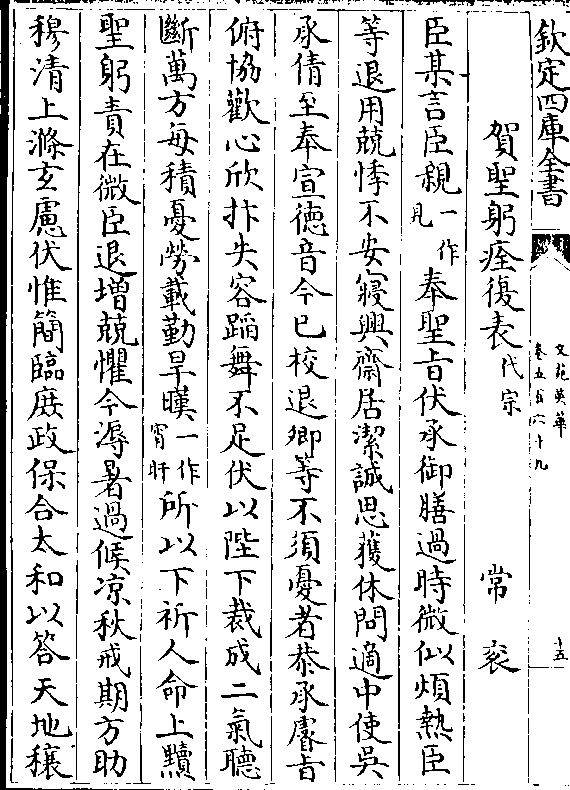 欽定四庫全書
文苑英華
卷五百六十九
十五
賀聖躬痊復表代宗 常袞
臣某言臣親一作見奉聖旨伏承御膳過時微似煩熱臣
等退用兢悸不安寢興齋居潔誠思獲休問適中使吳
承倩至奉宣徳音今已校退卿等不須憂者恭承睿旨
俯協歡心欣抃失容蹈舞不足伏以陛下裁成二氣聽
斷萬方每積憂勞載勤旱暵一作宵旰所以下祈人命上黷
聖躬責在微臣退增兢懼今溽暑過候凉秋戒期方助
穆清上滌玄慮伏惟簡臨庶政保合太和以答天地穰